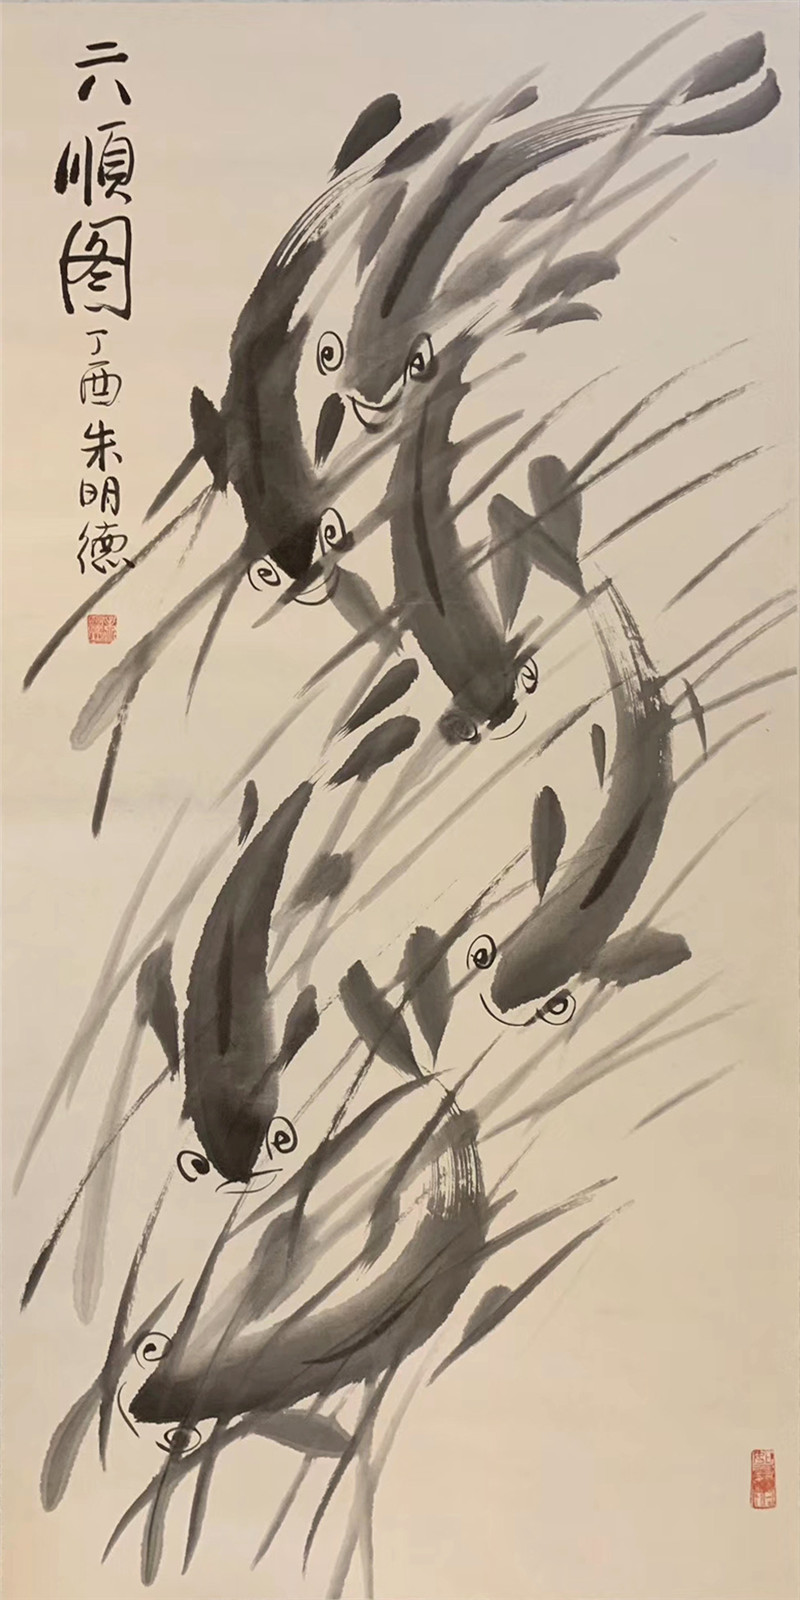 六順图丁酉朱明德